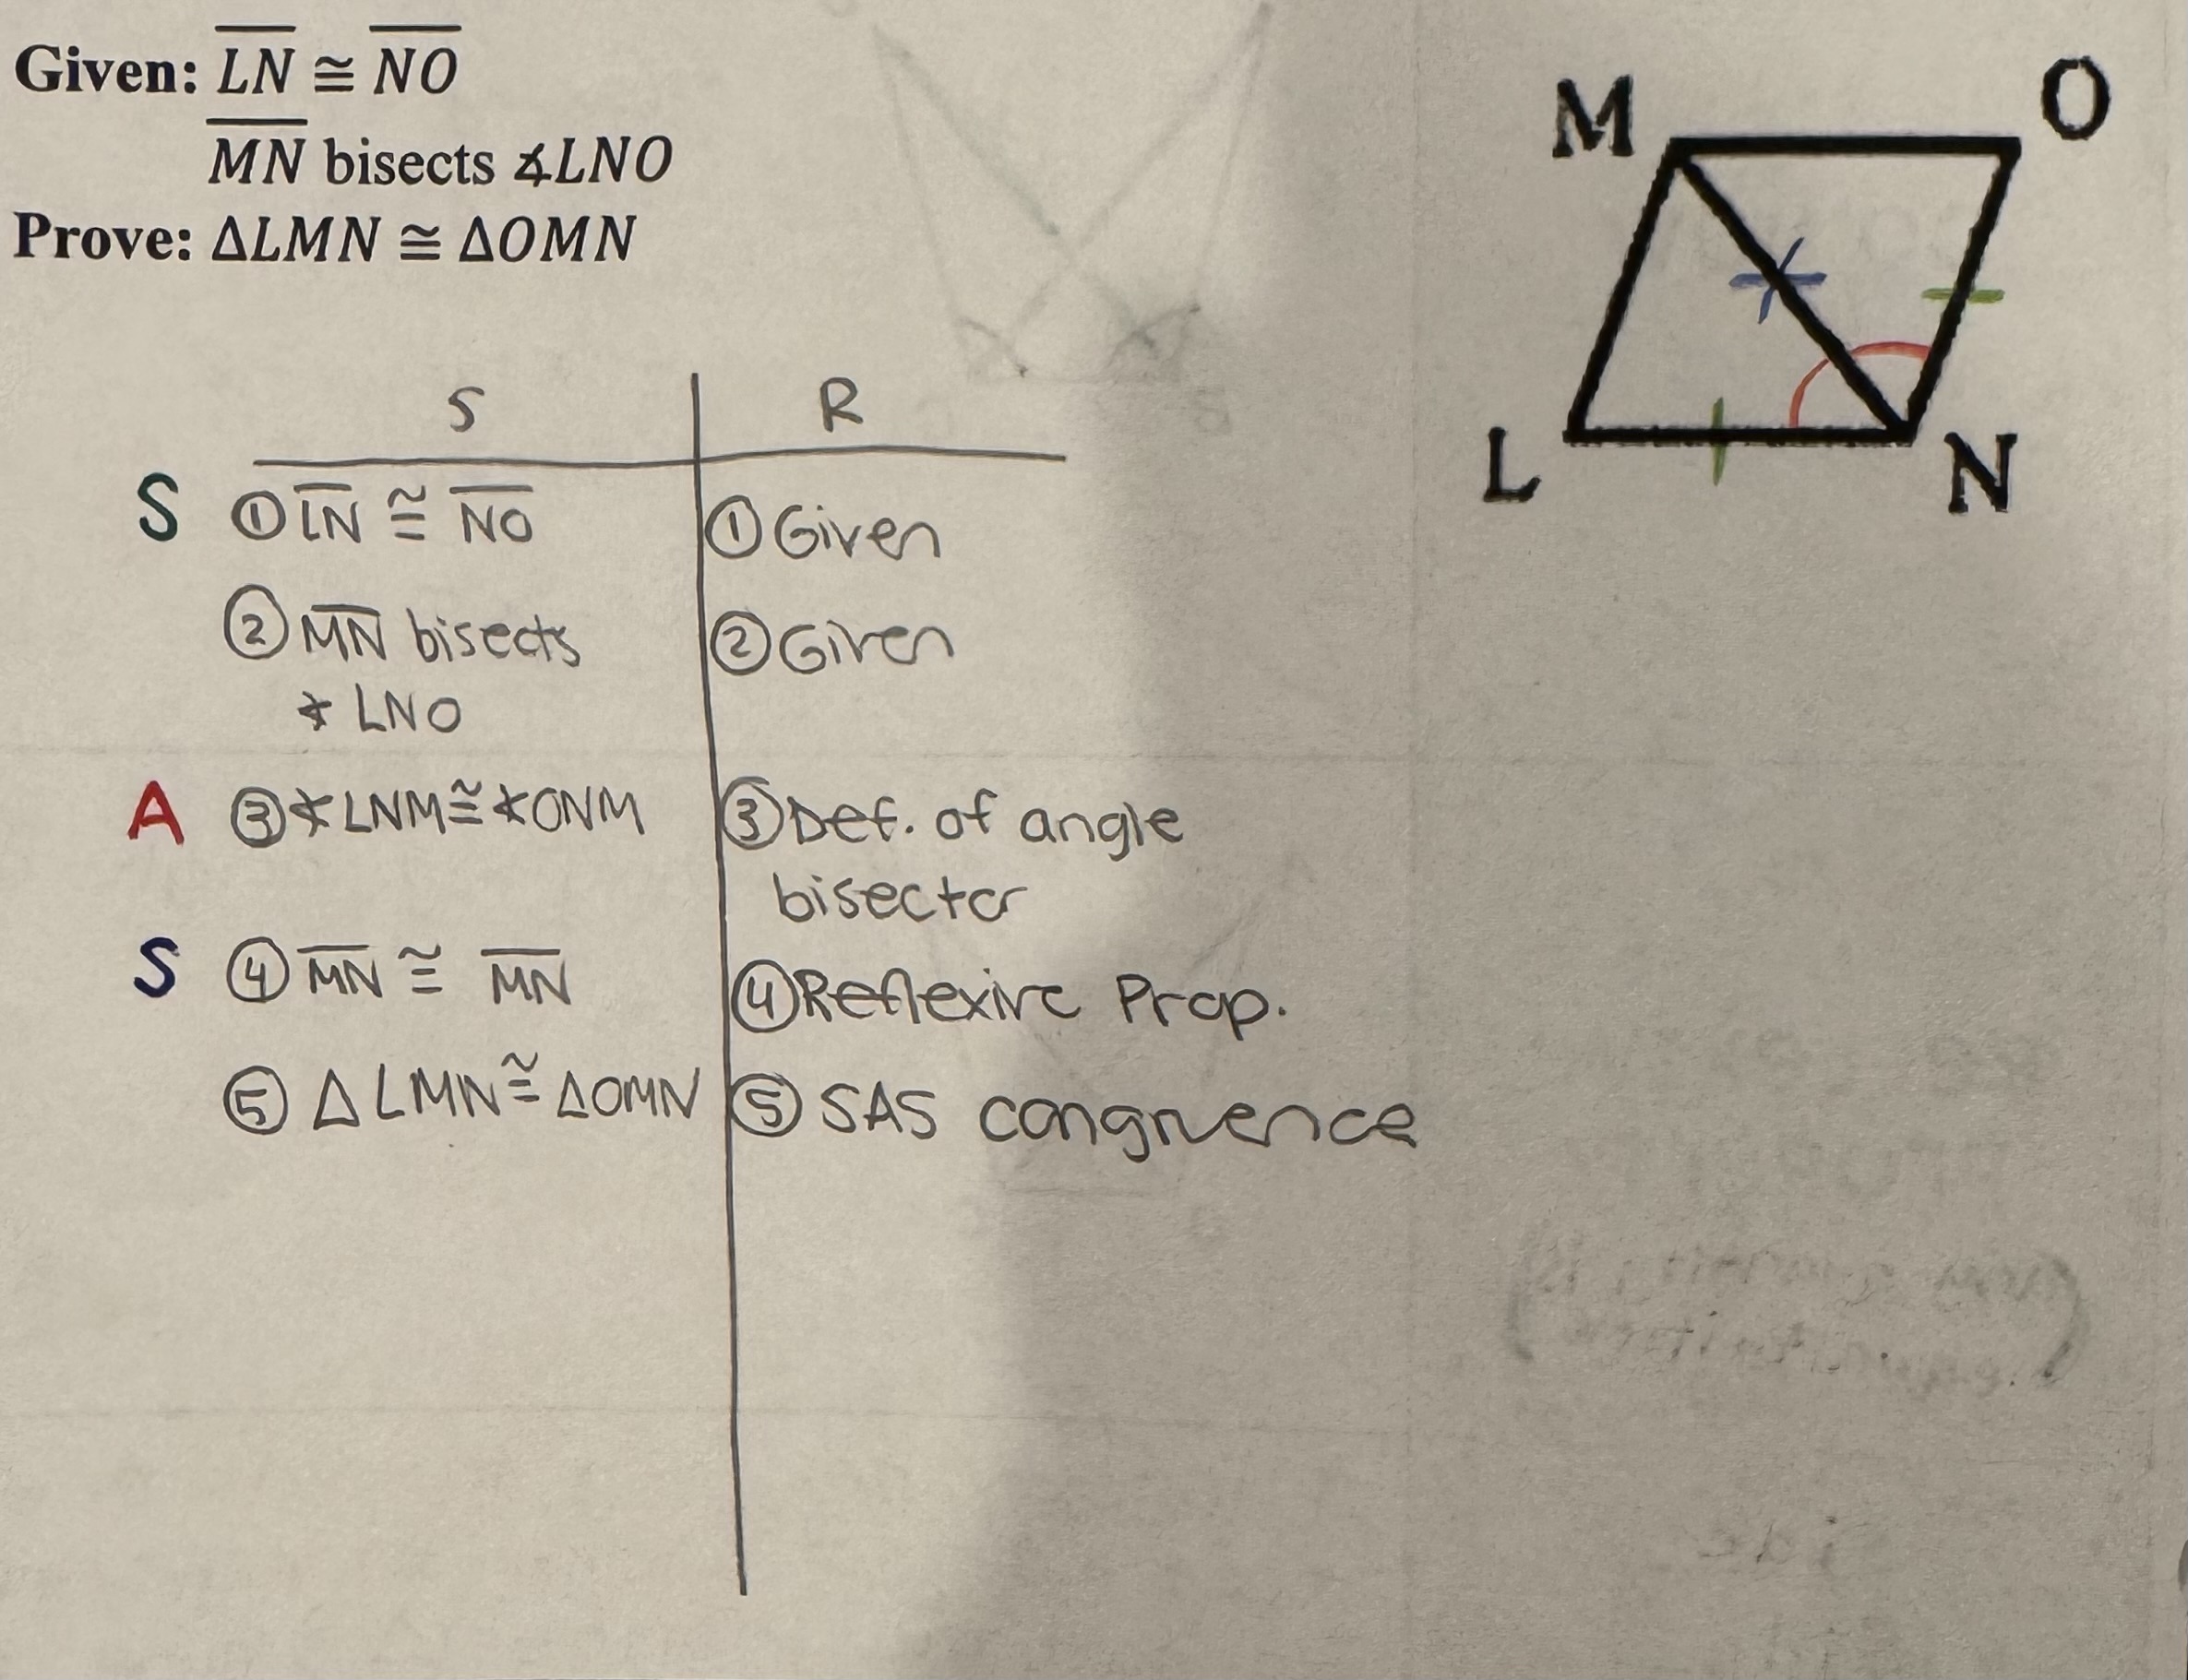 Given: LN ≅ NO
MN bisects ∡LNO
Prove: ΔLMN ≅ ΔOMN
M
O
L
N
S R
S ① LN ≅ NO ① Given
② MN bisects ② Given
∡ LNO
A ③ ∡LNM ≅ ∡ONM ③ Def. of angle
bisector
S ④ MN ≅ MN ④ Reflexive Prop.
⑤ Δ LMN ≅ ΔOMN ⑤ SAS congruence